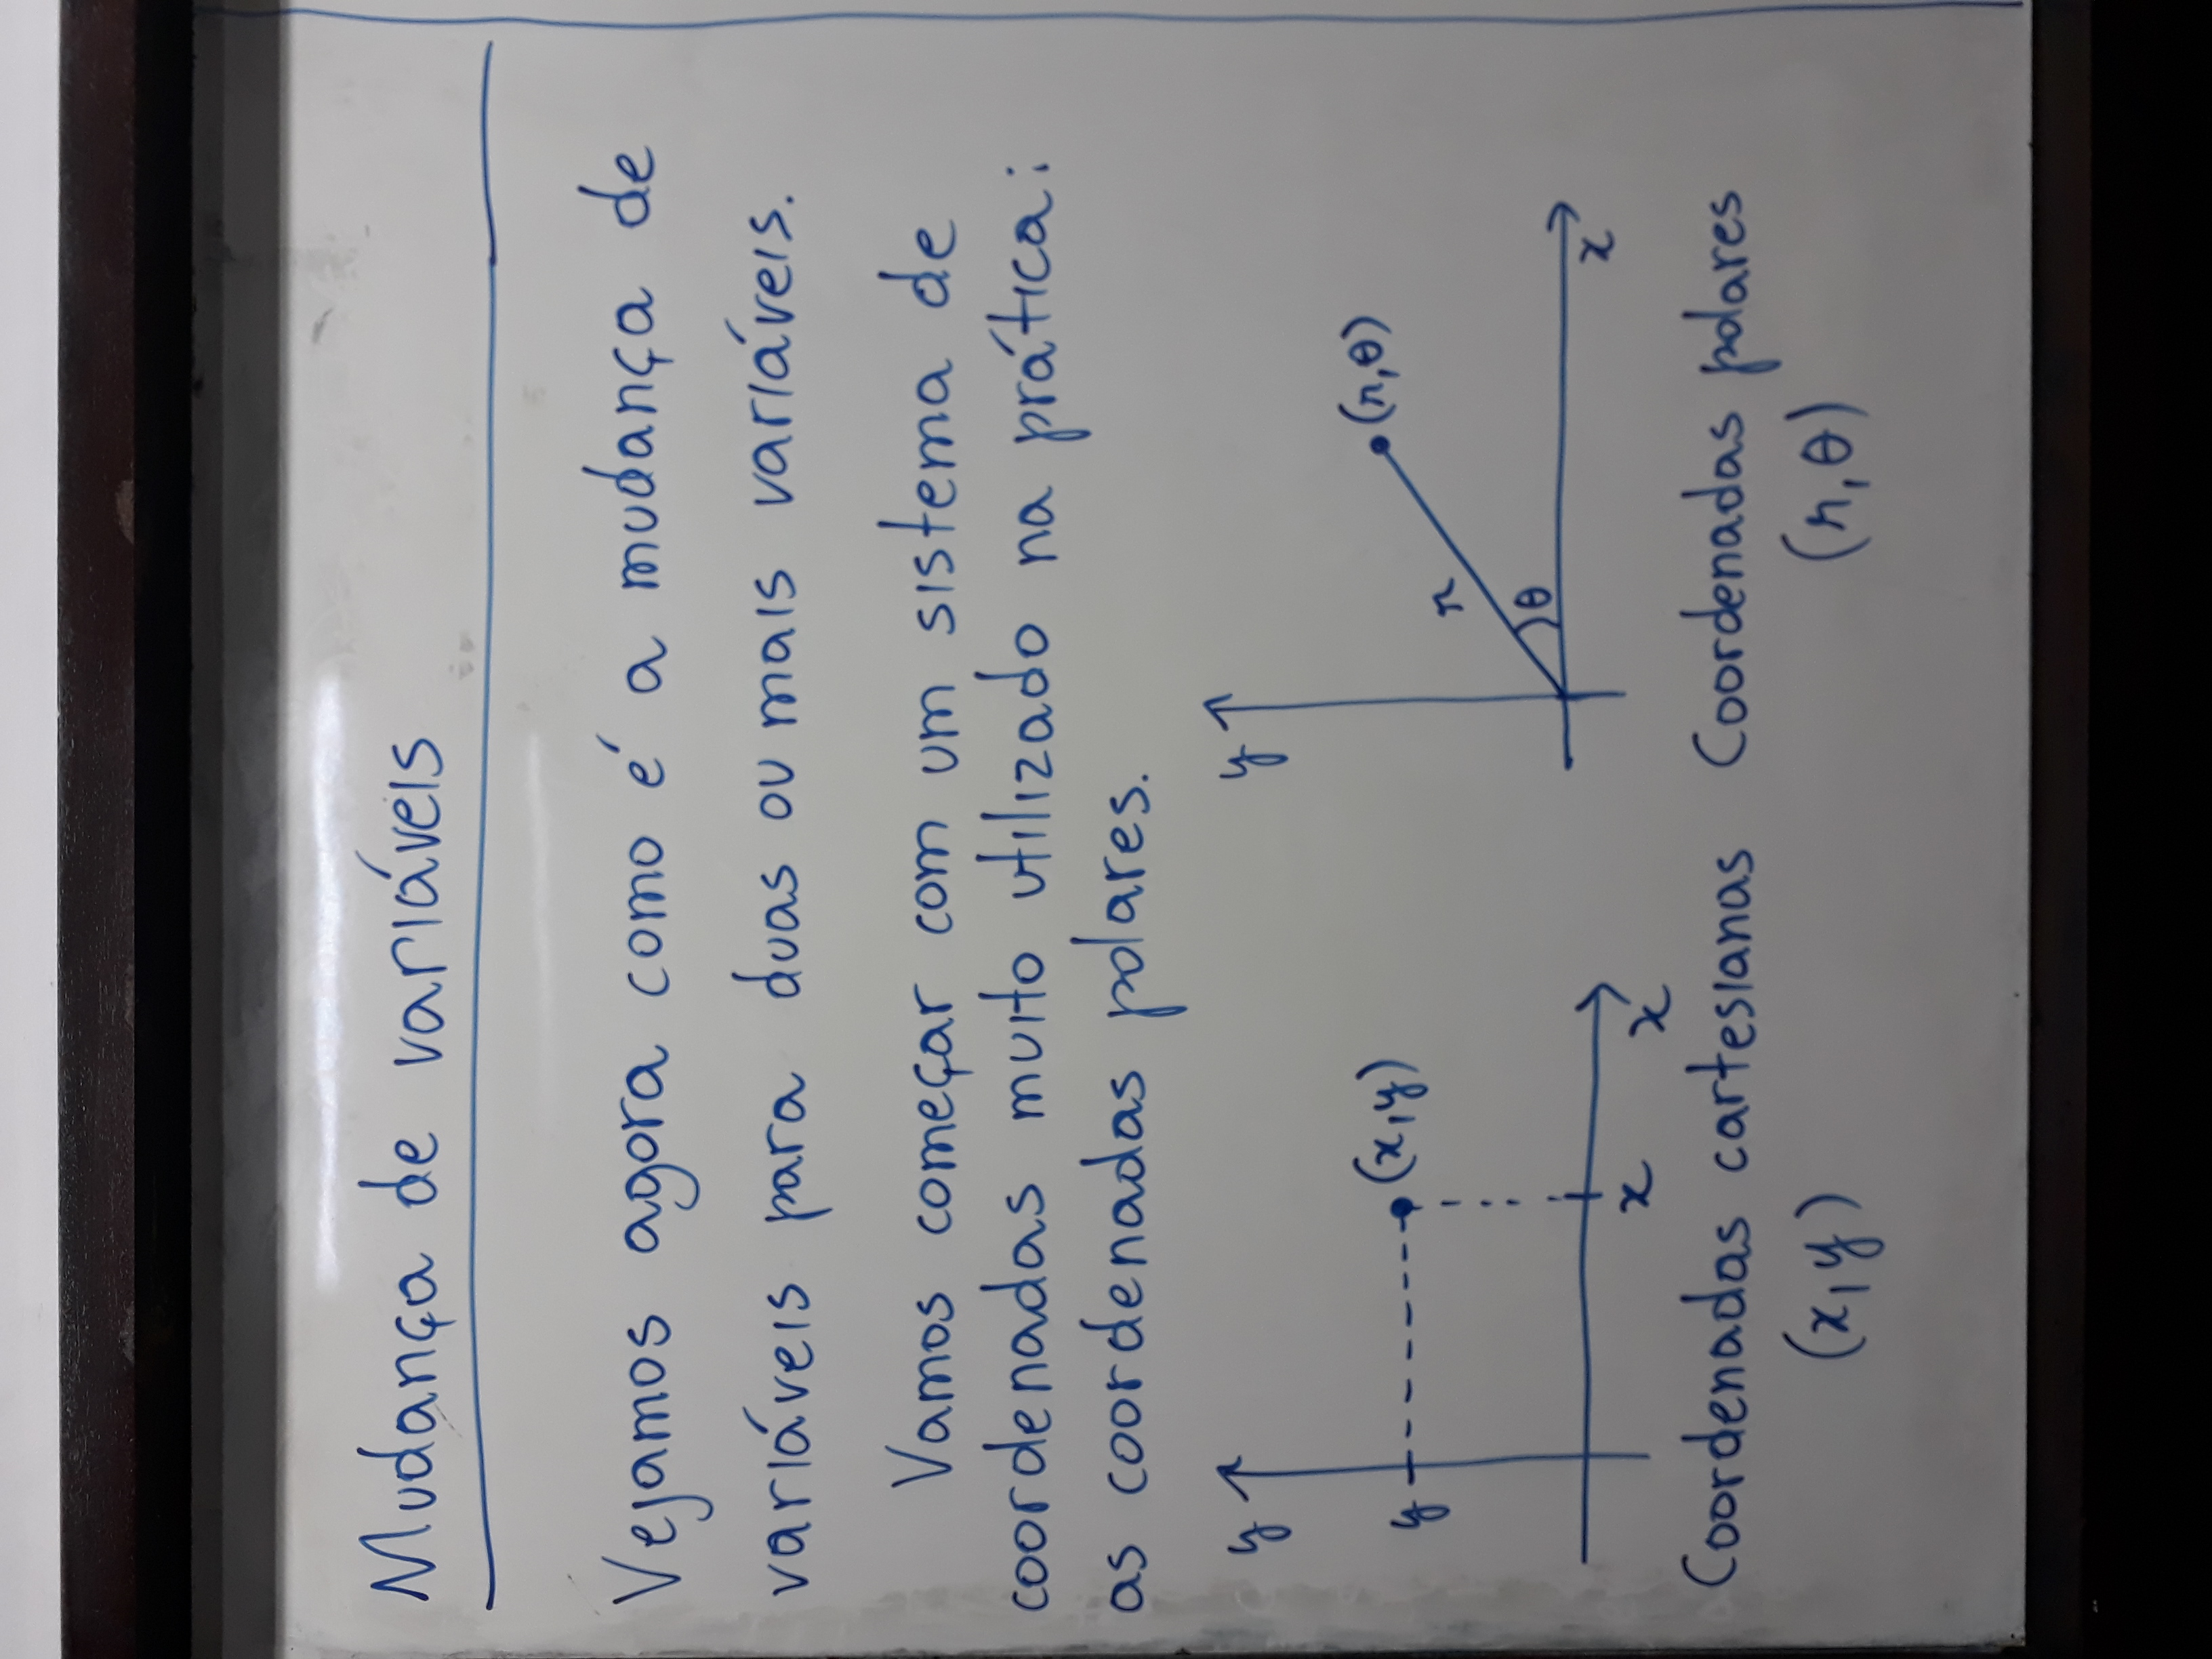 Mudança de variáveis
Vejamos agora como é a mudança de
variáveis para duas ou mais variáveis.
Vamos começar com um sistema de
coordenadas muito utilizado na prática:
as coordenadas polares.
y
y
(x,y)
x
x
Coordenadas cartesianas
(x,y)
y
(r,θ)
r
θ
x
Coordenadas polares
(r,θ)